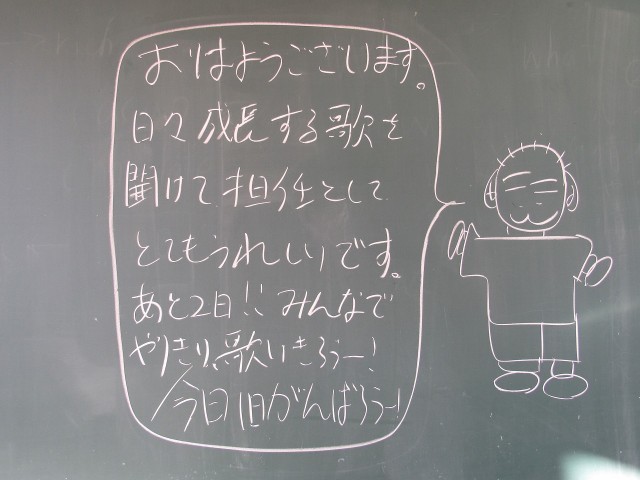 おはようございます。
日々成長する歌を
聞けて担任として
とてもうれしいです。
あと2日!!みんなで
やりきり、歌いきろうー!
今日1日がんばろうー!